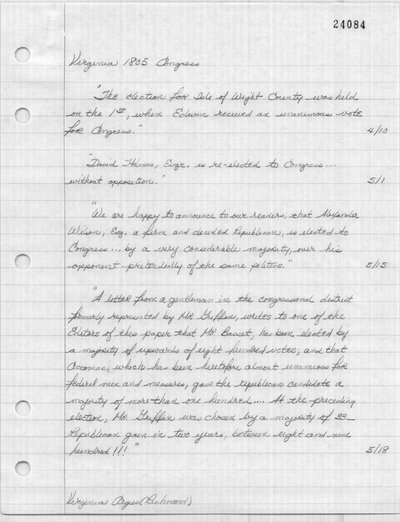 24084
Virginia 1805 Congress
"The election for Isle of Wight County was held
on the 1st, when Edwin received an unanimous vote
for Congress." 4/10
"David Holmes, Esqr. is re-elected to Congress....
without opposition." 5/1
"We are happy to announce to our readers, that Alexander
Wilson, Esq. a firm and decided Republican, is elected to
Congress... by a very considerable majority, over his
opponent pretendedly of the same politics." 5/15
"A letter from a gentleman in the congressional district
formerly represented by Mr Griffin, writes to one of the
Editors of this paper that Mr Basset, has been elected by
a majority of upwards of eight hundred votes; and that
Accomac, which has been heretofore almost unanimous for
federal men and measures, gave the republican candidate a
majority of more than one hundred.... At the preceding
election, Mr Griffin was chosen by a majority of 33—
Republican gain in two years, between eight and nine
hundred!!!" 5/18
Virginia Argus (Richmond)